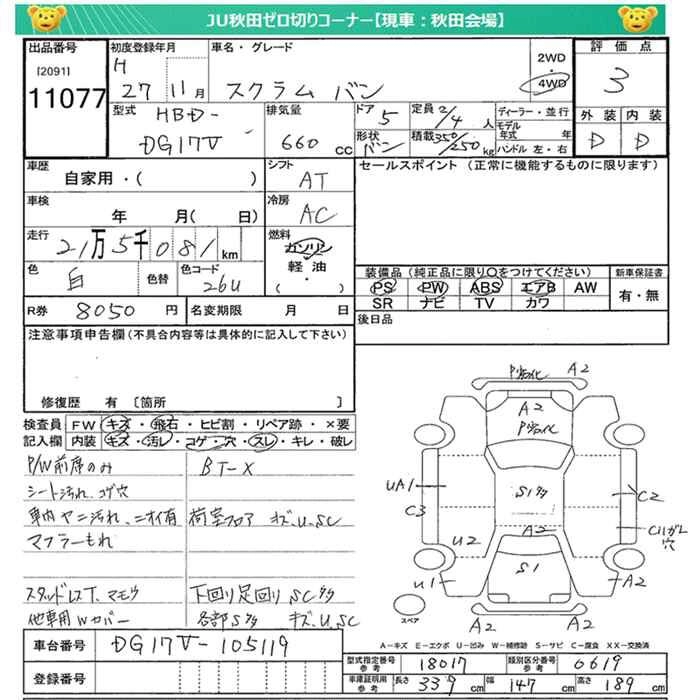 JU秋田ゼロ切りコーナー【現車：秋田会場】
出品番号
[2091]
11077
初度登録年月
H 27 11月
車名・グレード
スクラム バン
2WD
・
4WD
評価点
3
型式
HBD-
DG17V
排気量
660 cc
ドア
5
形状
バン
定員 2/4 人
積載 350/250 kg
ディーラー・並行
モデル年式 年
ハンドル 左・右
外装 内装
D D
車歴
自家用・( )
シフト
AT
セールスポイント (正常に機能するものに限ります)
車検
年 月( 日)
冷房
AC
走行
21万5千081km
燃料
ガソリン
軽油
・( )
色
白
色替
色コード
26U
装備品(純正品に限り○をつけてください)
PS PW ABS エアB AW
SR ナビ TV カワ
新車保証書
有・無
R券 8050 円
名変期限 月 日
後日品
注意事項申告欄(不具合内容等は具体的に記入して下さい)
修復歴 有 [箇所 ]
検査員記入欄
FW キズ・飛石・ヒビ割・リペア跡・×要
内装 キズ・汚レ・コゲ・穴・スレ・キレ・破レ
P/W前席のみ
BT-X
シート汚れ、コゲ穴
車内ヤニ汚れ、ニオイ有
荷室フロア キズ、U、SC
マフラーもれ
スタッドレスT、マモウ
下回り足回りSC多
他車用Wカバー
各部S多 キズ、U、SC
P劣化 A2
A2
P劣化
UA1
C3
S1多
C2
C1ガL
穴
U2
A2
U1
S1
A2
スペア
A2 A2
A-キズ E-エクボ U-凹み W-補修跡 S-サビ C-腐食 XX-交換済
車台番号
DG17V-105119
登録番号
型式指定番号
参考
18017
類別区分番号
参考
0619
車庫証明用
参考
長さ 339 cm
幅 147 cm
高さ 189 cm